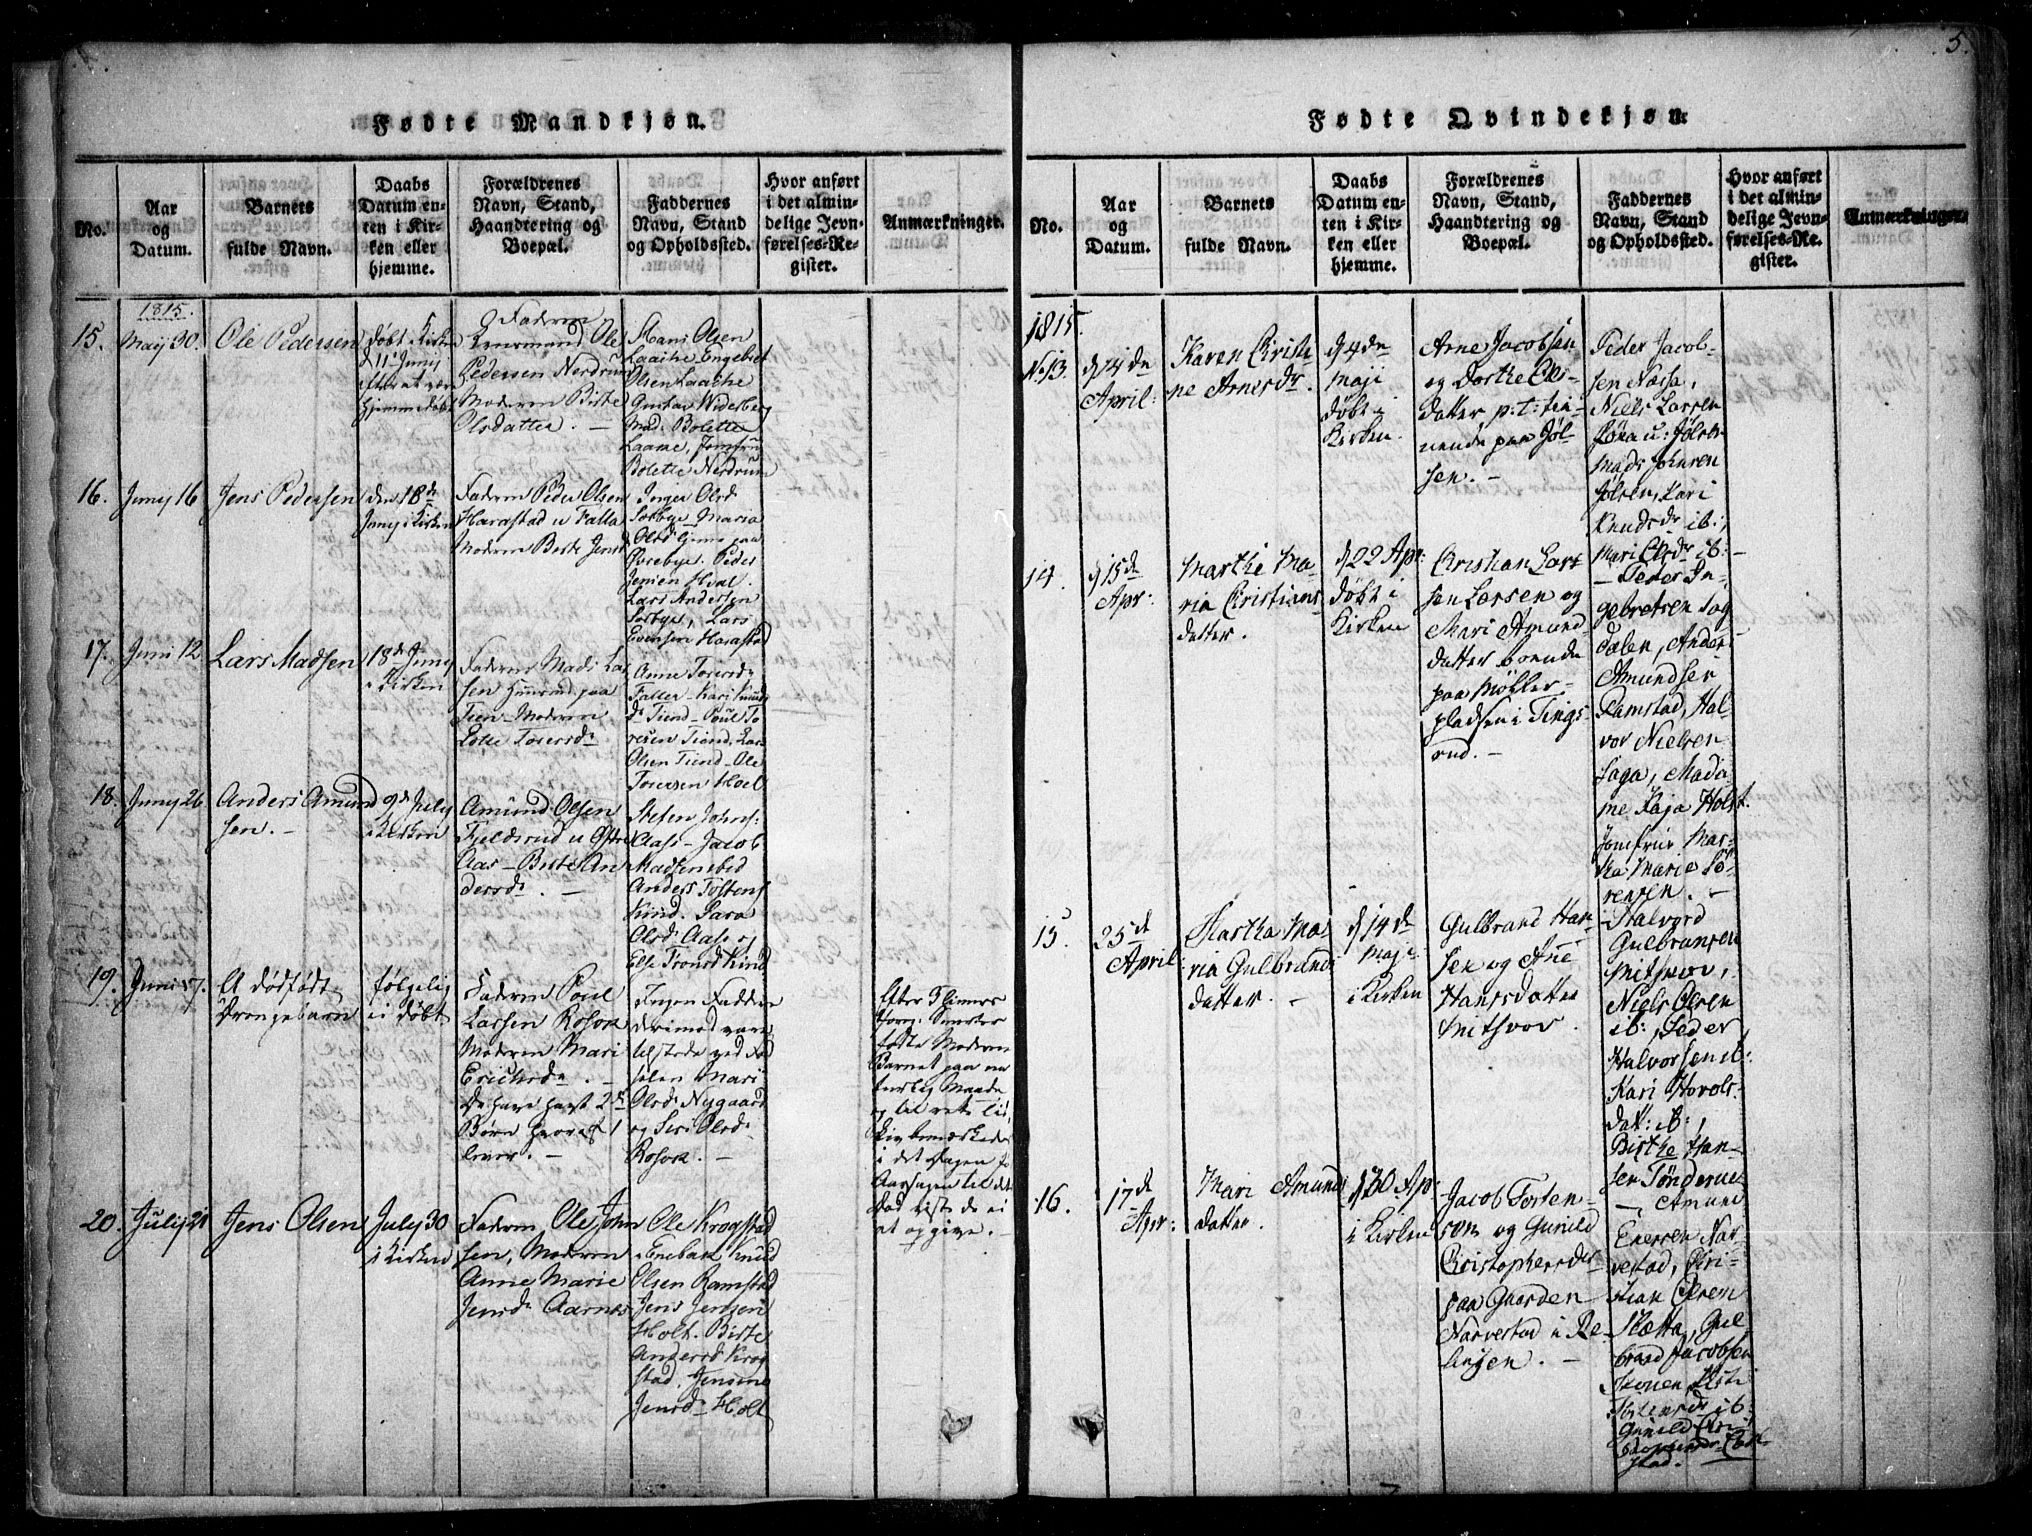 5.
Fødte Mandkjøn.
No.
Aar
og
Datum.
Barnets
fulde Navn.
Daabs
Datum en-
ten i Kir-
ken eller
hjemme.
Forældrenes
Navn, Stand,
Haandtering og
Boepæl.
Faddernes
Navn, Stand
og Opholdssted.
Hvor anført
i det almin-
delige Jevn-
førelses-Re-
gister.
Anmærkninger.
1815.
15.
Maij 30.
Ole Pedersen
døbt i Kirken
d 11te Junij
efter at være
hjemmedøbt
Faderen
Ole
Pedersen Nordrum
Moderen Birte
Olsdatter. –
Hans Olsen
Laache Engebret
Olsen Laache
Gustav Widerberg
Mad. Bolette
Laame, Jomfru
Bolette Nerdrum
16.
Junij 16
Jens Pedersen
den 18de
Junij i Kirken
Faderen Peder Olsen
Harastad u Falla
Moderen Berte Jensd
Inger Olsd
Sørbye Maria
Olsd tjener paa
Øvrebye. Peder
Jensen Hval.
Lars Andersen
Sørbye, Lars
Evensen Harastad
17.
Juni 12
Lars Madsen
18de Junij
i Kirken
Faderen Mads Lar
sen Huusmd paa
Tien – Moderen
Lotte Torersdr
Anne Torersdr
Faller – Kari Knuds
dr Tiend – Poul To
resen Tiend, Lars
Olsen Tiend – Ole
Toresen Hoel
18.
Junij 26
Anders Amund
sen. –
9de July
i Kirken
Amund Olsen
Fjeldsrud u Østre
Aas – Berte An
dersdr. –
Stefen Johns:
Aas – Jacob
Madsen ibid
Anders Tostens
Kind. Sara
Olsdr Aas og
Else Tronsd Kind
19.
Juni 17.
A dødfødt
Drengebarn
følgelig
ei døbt
Faderen Poul
Larsen Rosok
Moderen Mari
Erichsdr. –
De have havt 2de
Børn hvoraf 1
lever. –
Ingen Faddere
derimod vare
tilstede ved Fød
selen Mari
Olsdr Nygaard
og Siri Olsdr
Rosok. –
Efter
fødte Moderen
Barnet paa na
turlig Maade
og til rette tid,
i det
Aarsagen til det
Død viste de ei
at opgive. –
20.
Julij 21
Jens Olsen
July 30
i Kirken
Faderen Ole John
sen, Moderen
Anne Marie
Jensdr Aarnes
Ole Krogstad
i Enebak Knud
Olsen Ramstad
Jens Jensen
Holt. Birte
Andersd Krog
stad. Jensine
Jensdr Holt
Fødte Qvindekjøn.
No.
Aar
og
Datum.
Barnets
fulde Navn.
Daabs
Datum en-
ten i Kir-
ken eller
hjemme.
Forældrenes
Navn, Stand,
Haandtering og
Boepæl.
Faddernes
Navn, Stand
og Opholdssted.
Hvor anført
i det almin-
delige Jevn-
førelses-Re-
gister.
Anmærkninger.
1815.
No 13.
d 14de
April:
Karen Cirsti-
ne Arnesdr.
d 4de
Maji
døbt i
Kirken.
Arne Jacobsen
og Dorthe Ols-
datter p: t: tie-
nende paa Jøl-
sen. –
Peder Jacob-
sen Næssa,
Niels Larsen
u: Jølsen
Mads Johnsen
Jølsen, Kari
Knudsdr ib:,
Mari Olsdr ib: –
14.
d 15de
Apr:
Marthe Ma-
ria Christians
datter.
d 22 Apr:
døbt i
Kirken
Cristian Lars
sen Larsen og
Mari Amund-
datter boende
paa Møller-
pladsen i Tings-
rud. –
– Peder In-
gebretsen Sag
dalen, Anders
Amundsen
Ramstad, Hal-
vor Nielsen
Saga, Mada-
me Kaja Holst.
Jomfrue Mar-
tha Marie Sö-
rensen. –
15.
25de
April
Martha Ma-
ria Gulbrands
datter. –
d 14de
Maji
i Kirken
Gulbrand Han-
sen og Ane
Hansdatter
Mitsvov.
– Halvord
Gulbransen
Mitsvov,
Niels Olsen
ib:, Peder
Halvorsen ib:
Kari Hovols-
dat: ib:,
Birthe Han-
sen Tönderue
16.
17de
Apr:
Mari Amunds
datter.
d 30 Apr
i Kirken
Jacob Torten-
son og Gunild
Christophersdr
paa Gaarden
Narvestad i Re-
lingen. –
– Amund
Enersen Nar-
vestad, Chri-
stian Olsen
Slætta, Gul-
brand Jacobsen
Skouen
ib:
Gunild Cris-